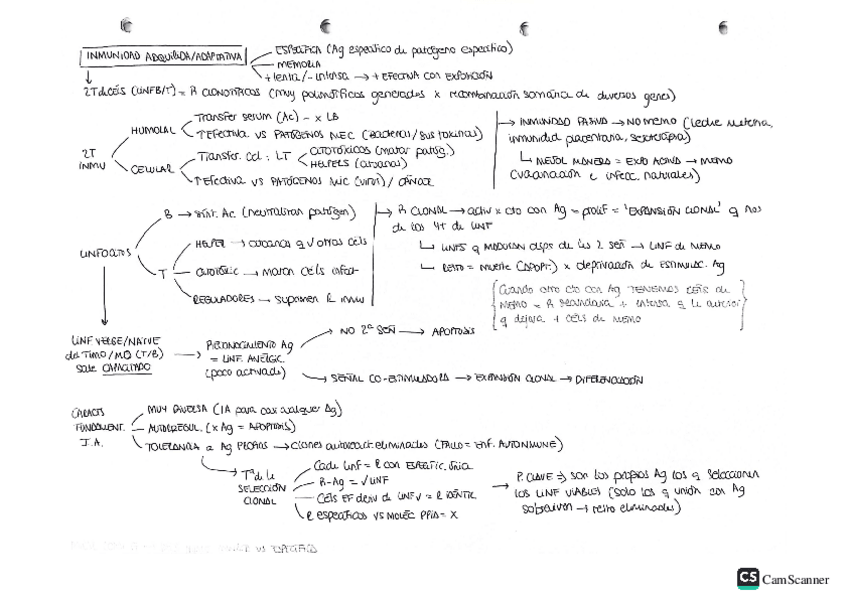 INMUNIDAD ADQUIRIDA/ADAPTATIVA
ESPECÍFICA (Ag específico de patógeno específico)
MEMORIA
+ lenta/- intensa → + EFECTIVA CON EXPOSICIÓN
2T de céls (LINF B/T) = R CLONOTÍPICOS (muy polimórficos generados x recombinación somática de diversos genes)
2T INMU
HUMORAL
Transfer serum (Ac) - x LB
↑ EFECTIVA VS PATÓGENOS MEC (bacterias/sus toxinas)
CELULAR
Transfer. Cel: LT
CITOTÓXICOS (matar patóg.)
HELPERS (citocinas)
↑ EFECTIVA VS PATÓGENOS MIC (virus)/CÁNCER
→ INMUNIDAD PASIVA → NO MEMO (leche materna,
inmunidad placentaria, seroterapia)
MEJOR MANERA = EXPO ACTIVA → MEMO
(vacunación e infecc. naturales)
LINFOCITOS
B → Ac. (neutralizan patógen)
T
HELPER → citocinas q √ otros céls
CITOTÓXIC → matan céls infec-
REGULADORES → suprimen R inmu
R CLONAL → activ x cto con Ag = prolif = 'EXPANSIÓN CLONAL' q
de los LINF
LINFS q disp. de las 2 SEÑ → LINF de MEMO
RESTO = MUERTE (APOPT.) x deprivación de ESTIMULAC. Ag
Cuando otro cto con Ag TENEMOS CÉLS DE
MEMO = R secundaria + intensa q la anterior
q dejará + CÉLS de MEMO
LINF VIRGE/NAIVE
del TIMO/MO (T/B)
sale CAPACITADO
RECONOCIMIENTO Ag
= LINF. ANÉRGIC.
(poco activado)
NO 2ª SEÑ → APOPTOSIS
SEÑAL CO-ESTIMULADORA → EXPANSIÓN CLONAL → DIFERENCIACIÓN
CARACTS
FUNDAMENT.
I.A.
MUY DIVERSA (IA para casi cualquier Ag)
AUTORREGUL. (x Ag = APOPTOSIS)
TOLERANCIA a Ag PROPIOS → clones autorreact eliminados (FALLO = ENF. AUTOINMUNE)
Tª de la
SELECCIÓN
CLONAL
Cada LINF = R con ESPECIFIC. única
R-Ag = √ LINF
Céls EF deriv de LINF V = R IDÉNTIC
R específicos VS MOLÉC PPIA = X
→ P. CLAVE ⇒ son los propios Ag los q seleccionan
los LINF VIABLES (solo los q unión con Ag
sobreviven → resto eliminados)
CS CamScanner